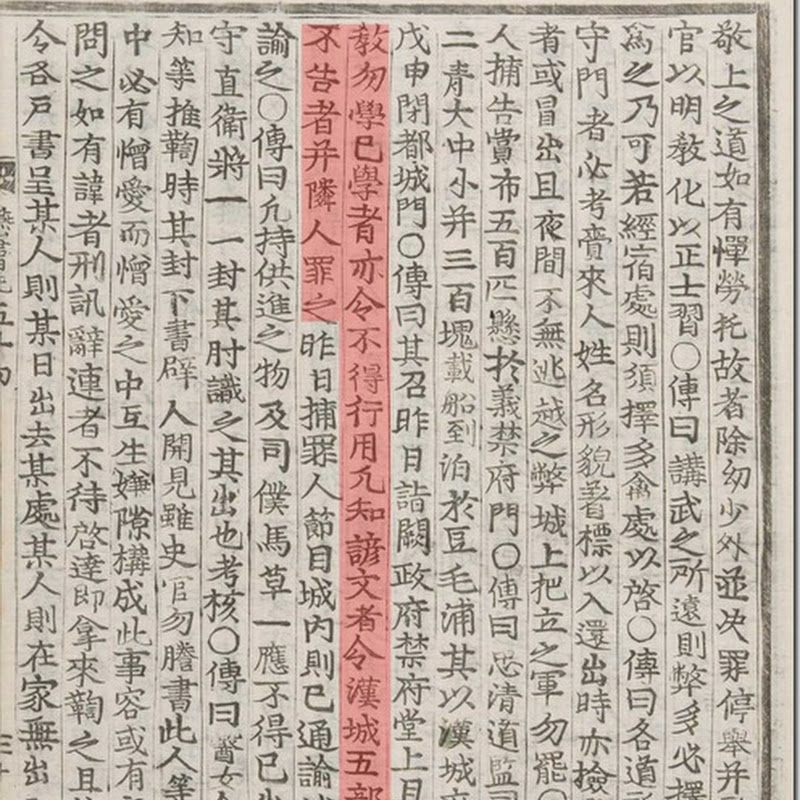 敬上之道如有憚勞托故者除幼少外並决罪停擧并
官以明敎化以正士習〇傳曰講武之所遠則弊多必擇
爲之乃可若經宿處則須擇多禽處以啓〇傳曰各道
守門者必考賫來人姓名形貌着標以入還出時亦撿
者或冒出且夜間不無逃越之弊城上把立之軍勿罷〇
人捕告賞布五百匹懸於義禁府門〇傳曰忠清道監司
二靑大中小并三百塊載船到泊於豆毛浦其以漢城府
戊申閉都城門〇傳曰其召昨日詣闕政府禁府堂上且
敎勿學已學者亦令不得行用凡知諺文者令漢城五部
不告者并隣人罪之昨日捕罪人節目城內則已通諭
諭之〇傳曰凡持供進之物及司僕馬草一應不得已出
守直衛將一一封其肘識之其出也考核〇傳曰醫女
知等推鞫時其封下書辟人開見雖史官勿謄書此人等
中必有憎愛而憎愛之中互生嫌隙構成此事容或有
問之如有諱者刑訊辭連者不待啓達卽拿來鞫之且
令各戶書呈某人則某日出去某處某人則在家無出